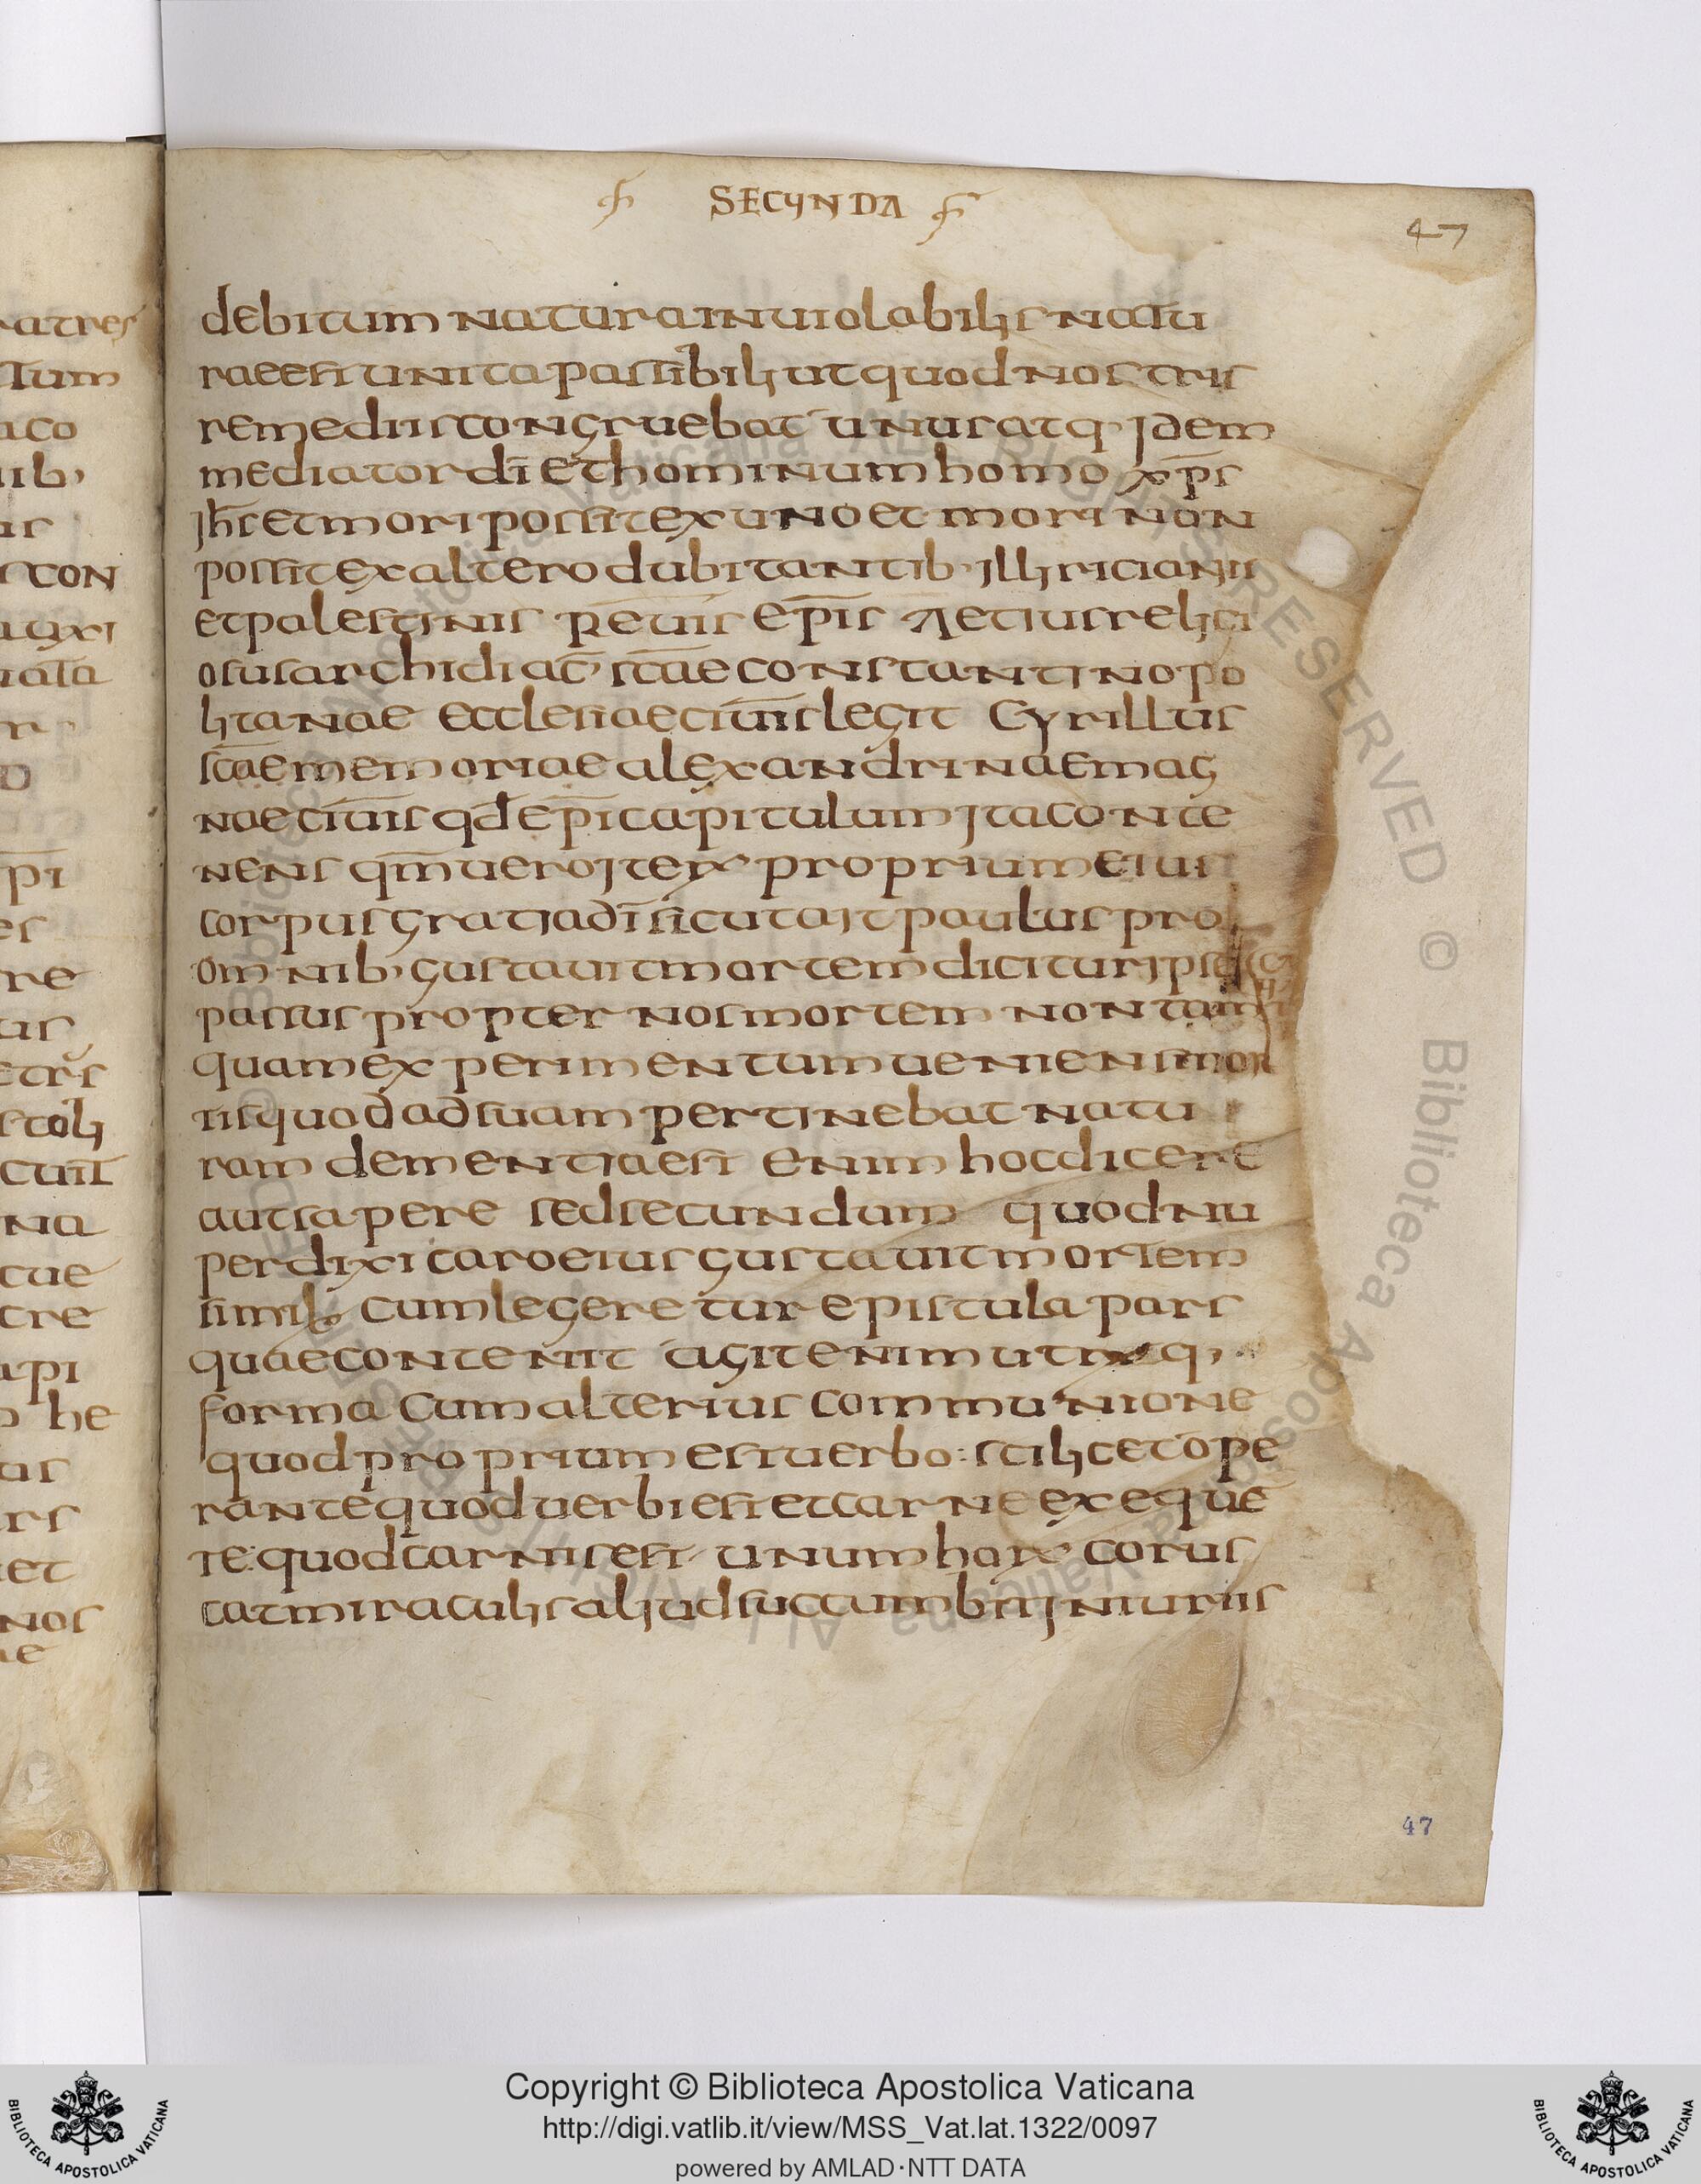 SECUNDA
47
debitum natura inuiolabilis natu
rae est unita passibili ut quod nostris
remediis congruebat unus atq· idem
mediator dī et hominum homo xp̄s
ih̄s et mori possit ex uno et mori non
possit ex altero dubitantib· illiricianis
et palestinis reuīs ep̄is Aetius religi
osus archidiac̄ sc̄ae constantinopo
litanae ecclesiae ciuīs legit Cyrillus
sc̄ae memoriae alexandrinae mag
nae ciuīs qd̄ ep̄i capitulum ita conte
nens qm̄ uero iter proprium eius
corpus gratia dī sicut ait paulus pro
omnib· gustauit mortem dicitur ipse
passus propter nos mortem non tam
quam experimentum ueniens mor
tis quod ad suam pertinebat natu
ram dementia est enim hoc dicere
aut sapere sed secundum quod nu
per dixi caro eius gustauit mortem
simil cum legeretur epistula pars
quae contenit agit enim utraq·
forma cum alterius communione
quod proprium est uerbo: scilicet ope
rante quod uerbi est et carne exeque̅
te: quod carnis est unum horx corus
cat miraculis aliud succumbit iniuriis
47
atres
tum
aco
ib·
us
s con
auxi
pi
es
re
us
etrs
stoli
cuit
na
cue
cre
api
he
us
rs
et
nos
ae
© Biblioteca Apostolica Vaticana ALL RIGHTS RESERVED © Biblioteca Apostolica Vaticana ALL RIGHTS RESERVED
Copyright © Biblioteca Apostolica Vaticana
http://digi.vatlib.it/view/MSS_Vat.lat.1322/0097
powered by AMLAD·NTT DATA
BIBLIOTECA APOSTOLICA VATICANA
BIBLIOTECA APOSTOLICA VATICANA